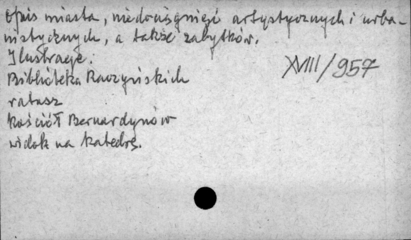 opis miasta, niedociągnięć artystycznych i urba-
nistycznych, a także zabytków.
Ilustracje:
Biblioteka Raczyńskich
XVIII/957
ratusz
Kościół Bernardynów
widok na katedrę.